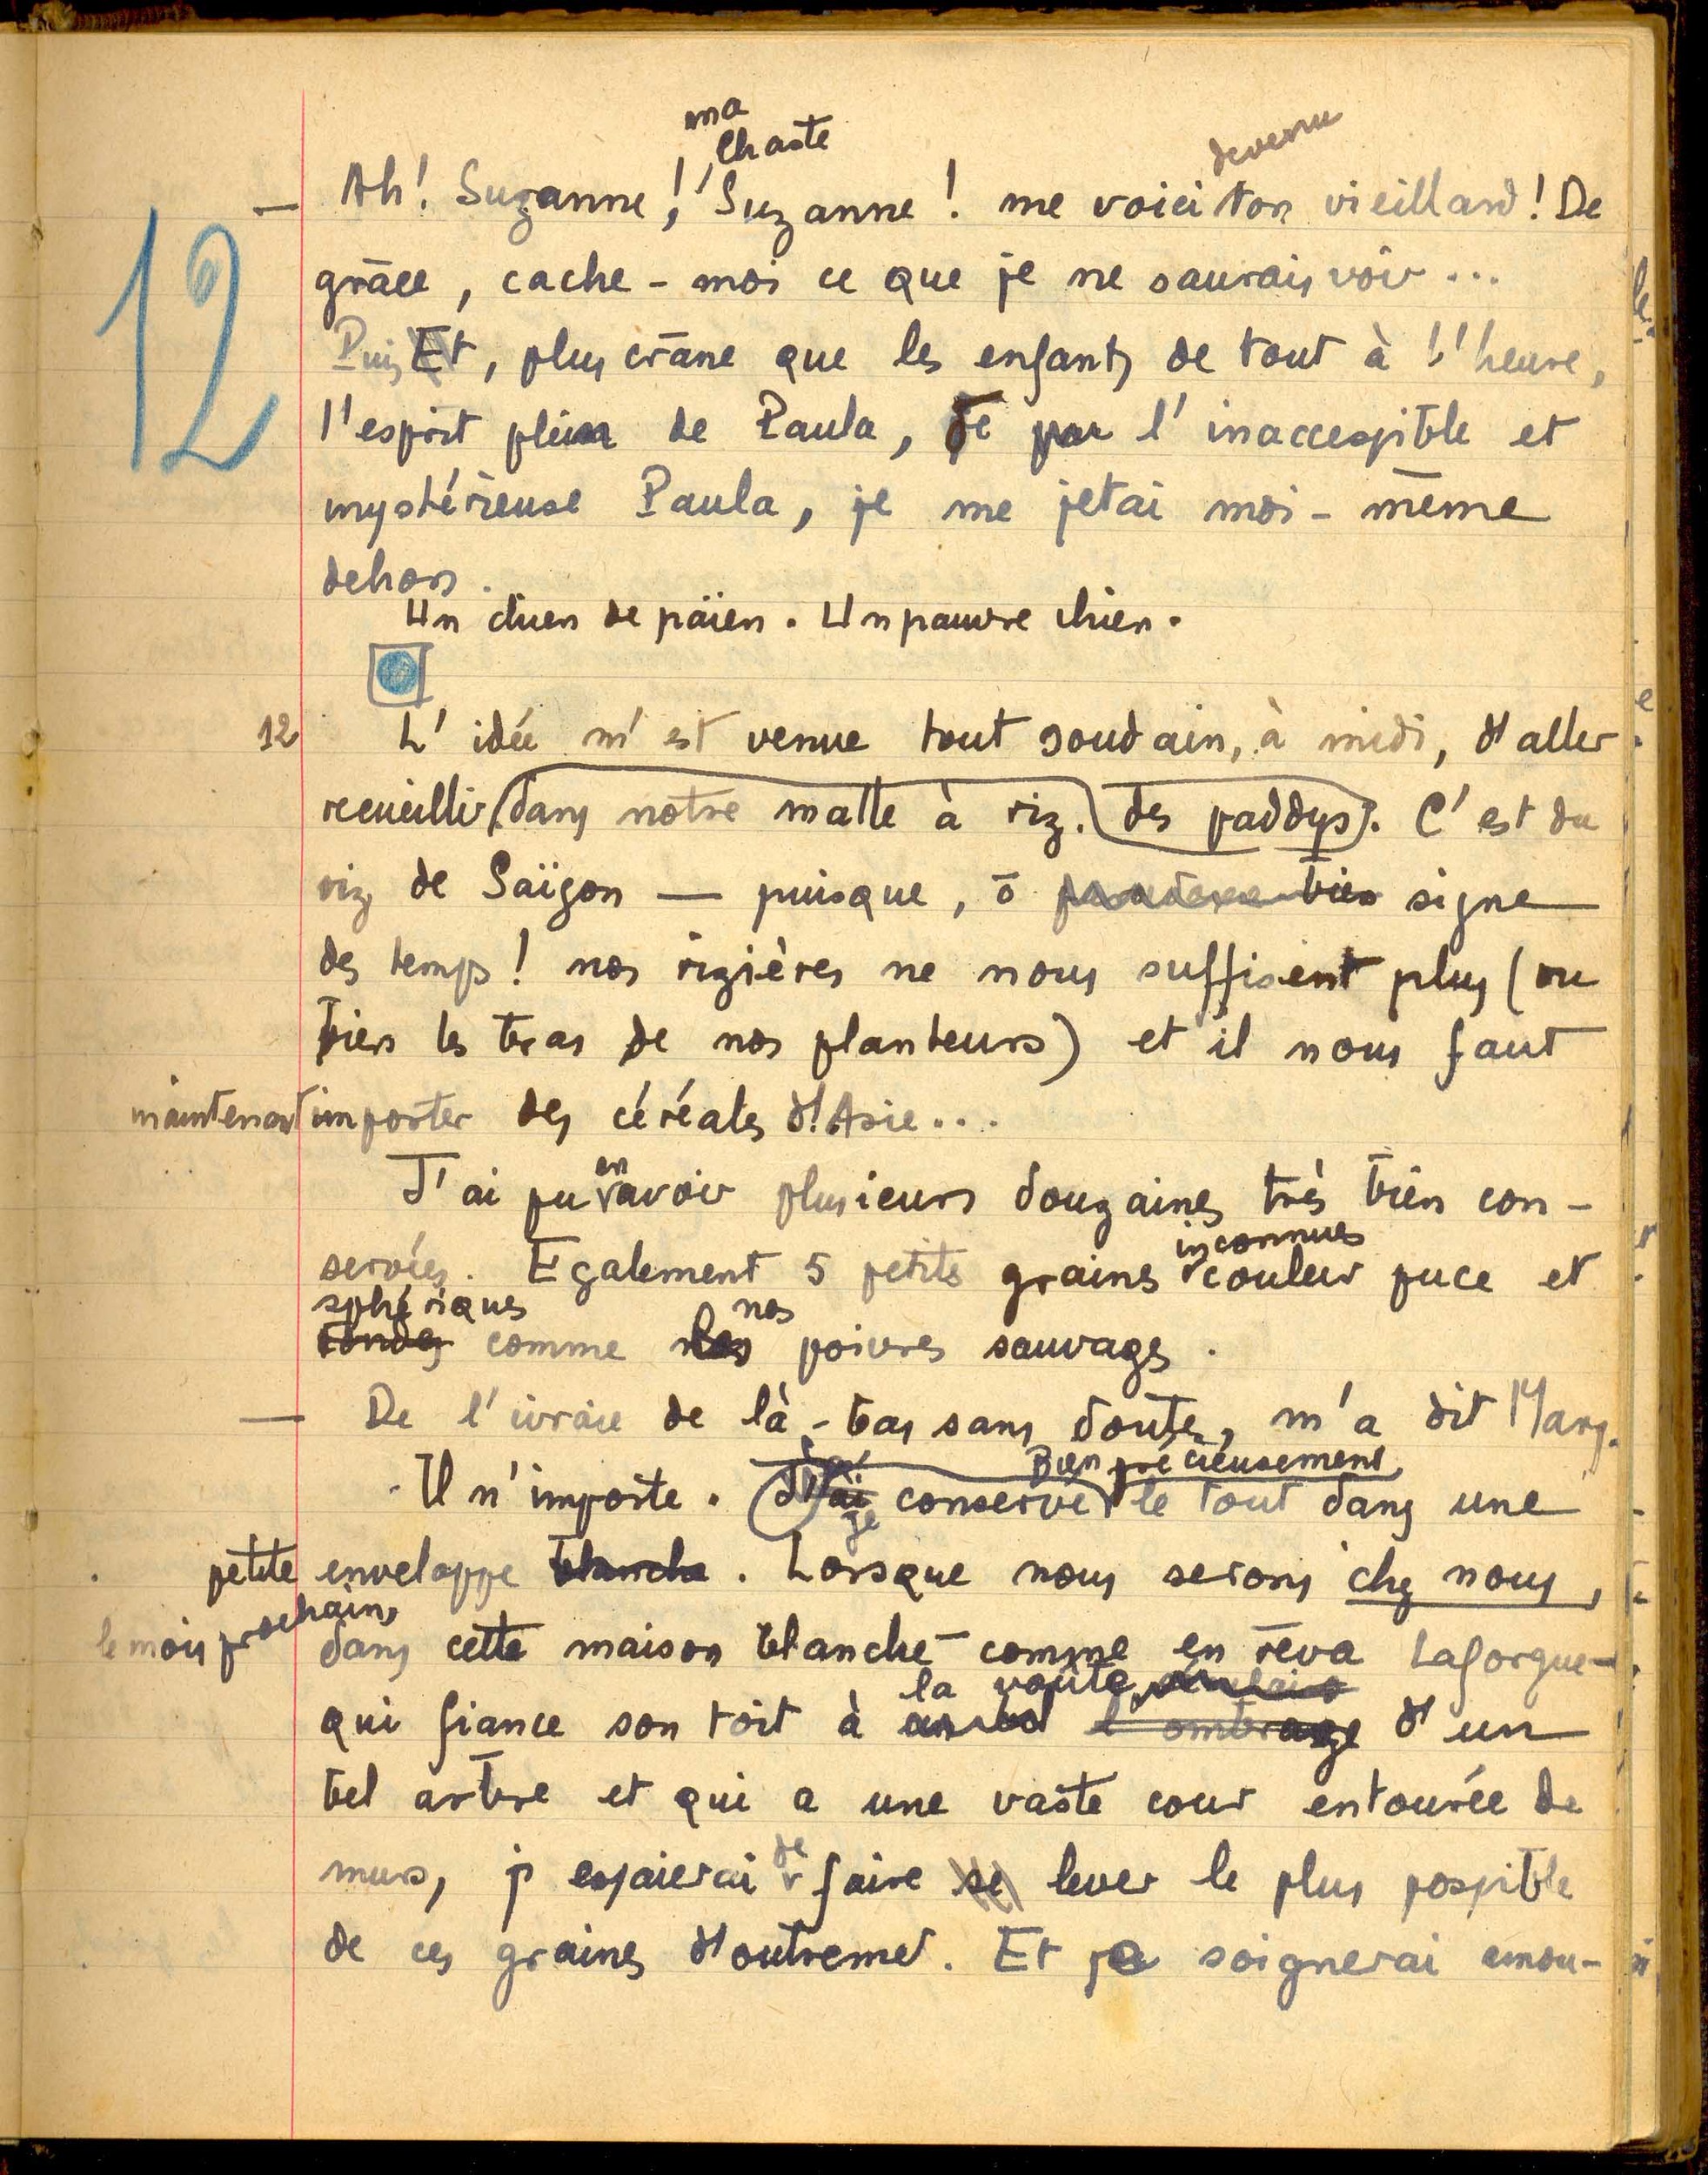 ma
chaste
devenu
— Ah! Suzanne! Suzanne! me voici ton vieillard! De
grâce, cache-moi ce que je ne saurais voir...
Puis Et, plus crâne que les enfants de tout à l'heure,
12
l'esprit plein de Paula, de l'inaccessible et
mystérieuse Paula, je me jetai moi-même
dehors.
Un chien de païen. Un pauvre chien.
12 L'idée m'est venue tout soudain, à midi, d'aller
recueillir (dans notre malle à riz. des paddys). C'est du
riz de Saïgon — puisque, ô bien signe
des temps! nos rizières ne nous suffisent plus (ou
bien les bras de nos planteurs) et il nous faut
maintenant importer des céréales d'Asie...
J'ai pu en avoir plusieurs douzaines très bien con-
inconnues
servées. Egalement 5 petits grains couleur puce et
sphériques nos
rondes comme poivres sauvages.
— De l'ivraie de là-bas sans doute, m'a dit Mary.
Bien précieusement
Il n'importe. J'ai conservé le tout dans une
je
petite enveloppe blanche. Lorsque nous serons chez nous,
le mois prochain,
dans cette maison blanche – comme en rêva Laforgue –
la voûte
qui fiance son toit à l'ombrage d'un
bel arbre et qui a une vaste cour entourée de
de
murs, j'essaierai faire se lever le plus possible
de ces graines d'outremer. Et je soignerai amou-